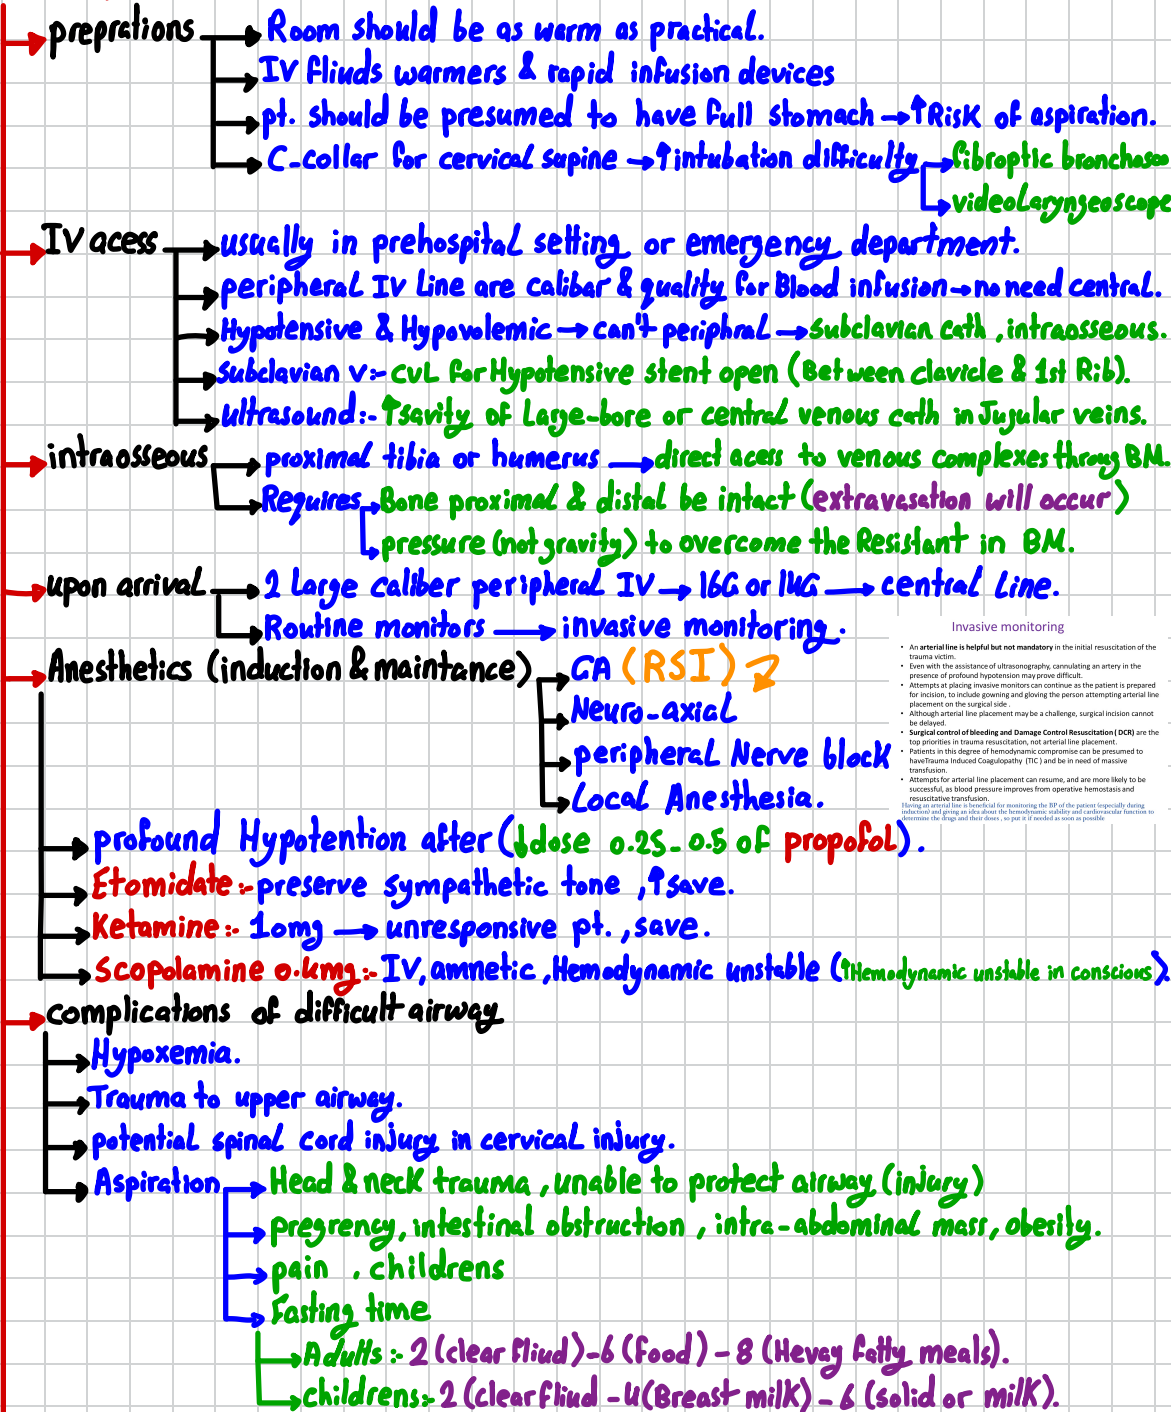 preprations
Room should be as warm as practical.
IV fliuds warmers & rapid infusion devices
pt. should be presumed to have full stomach → ↑Risk of aspiration.
C-collar for cervical supine → ↑intubation difficulty
fibroptic bronchosco
videoLaryngeoscope
IV acess
usually in prehospital setting or emergency department.
peripheral IV Line are calibar & quality for Blood infusion → no need central.
Hypotensive & Hypovolemic → can't periphral → Subclavian cath, intraosseous.
Subclavian v:- CVL for Hypotensive stent open (Between clavicle & 1st Rib).
ultrasound:- ↑savity of Large-bore or central venous cath in Jugular veins.
intraosseous
proximal tibia or humerus → direct acess to venous complexes throug BM.
Requires
Bone proximal & distal be intact (extravasation will occur)
pressure (not gravity) to overcome the Resistant in BM.
upon arrival
2 Large caliber peripheral IV → 16G or 14G → central Line.
Routine monitors → invasive monitoring.
Invasive monitoring
• An arterial line is helpful but not mandatory in the initial resuscitation of the
trauma victim.
• Even with the assistance of ultrasonography, cannulating an artery in the
presence of profound hypotension may prove difficult.
• Attempts at placing invasive monitors can continue as the patient is prepared
for incision, to include gowning and gloving the person attempting arterial line
placement on the surgical side .
• Although arterial line placement may be a challenge, surgical incision cannot
be delayed.
• Surgical control of bleeding and Damage Control Resuscitation ( DCR) are the
top priorities in trauma resuscitation, not arterial line placement.
• Patients in this degree of hemodynamic compromise can be presumed to
haveTrauma Induced Coagulopathy (TIC ) and be in need of massive
transfusion.
• Attempts for arterial line placement can resume, and are more likely to be
successful, as blood pressure improves from operative hemostasis and
resuscitative transfusion.
Having an arterial line is beneficial for monitoring the BP of the patient (especially during
induction) and giving an idea about the hemodynamic stability and cardiovascular function to
determine the drugs and their doses , so put it if needed as soon as possible
Anesthetics (induction & maintance)
GA (RSI)
Neuro-axial
peripheral Nerve block
Local Anesthesia.
profound Hypotention after (↓dose 0.25-0.5 of propofol).
Etomidate:- preserve sympathetic tone, ↑save.
Ketamine:- 10mg → unresponsive pt., save.
Scopolamine 0.4mg:- IV, amnetic, Hemodynamic unstable (↑Hemodynamic unstable in conscious)
complications of difficult airway
Hypoxemia.
Trauma to upper airway.
potential spinal cord injury in cervical injury.
Aspiration
Head & neck trauma, unable to protect airway (injury)
pregrency, intestinal obstruction, intra-abdominal mass, obesity.
pain, childrens
Fasting time
Adults:- 2 (clear fliud) - 6 (food) - 8 (Hevay fatty meals).
childrens:- 2 (clear fliud - 4 (Breast milk) - 6 (solid or milk).